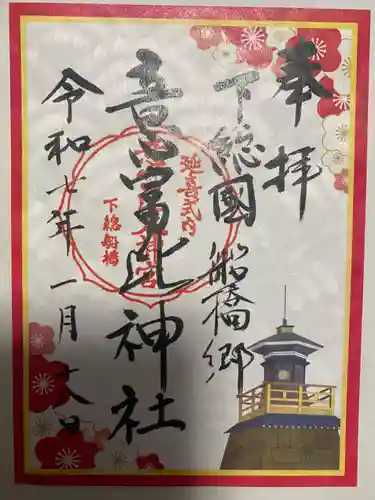 奉拝
下総國船橋郷
意富比神社
令和七年一月十八日
延喜式内
下総船橋